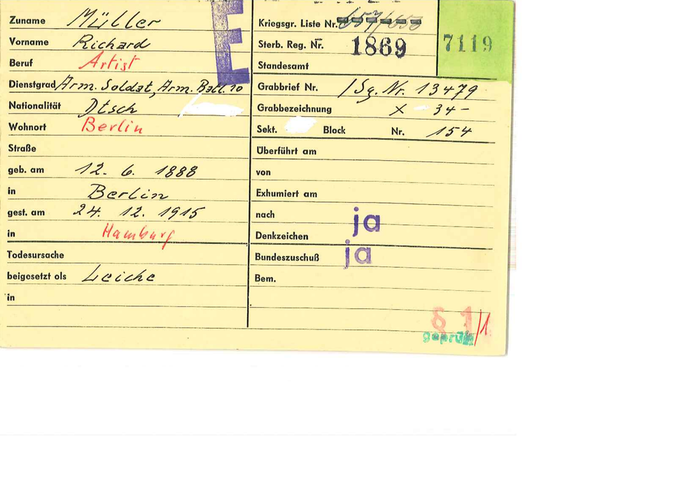 Zuname Müller
Vorname Richard
Beruf Artist
Dienstgrad Arm. Soldat, Arm. Batl. 70
Nationalität Dtsch
Wohnort Berlin
Straße
geb. am 12. 6. 1888
in Berlin
gest. am 24. 12. 1915
in Hamburg
Todesursache
beigesetzt als Leiche
in
E
Kriegsgr. Liste Nr.
Sterb. Reg. Nr. 1869
7119
Standesamt
Grabbrief Nr. /Sg. Nr. 13479
Grabbezeichnung X -34-
Sekt. Block Nr. 154
Überführt am
von
Exhumiert am
nach
Denkzeichen ja
Bundeszuschuß ja
Bem.
§ 1
/1
geprüft